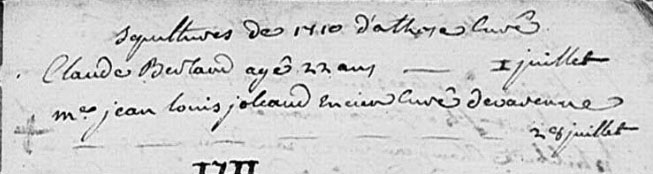 sepultures de 1710 d'athose Curé
Claude Berland agé 22 ans — 1 juillet
mre jean louis joleaud encien Curé devarenne
28 juillet
1711